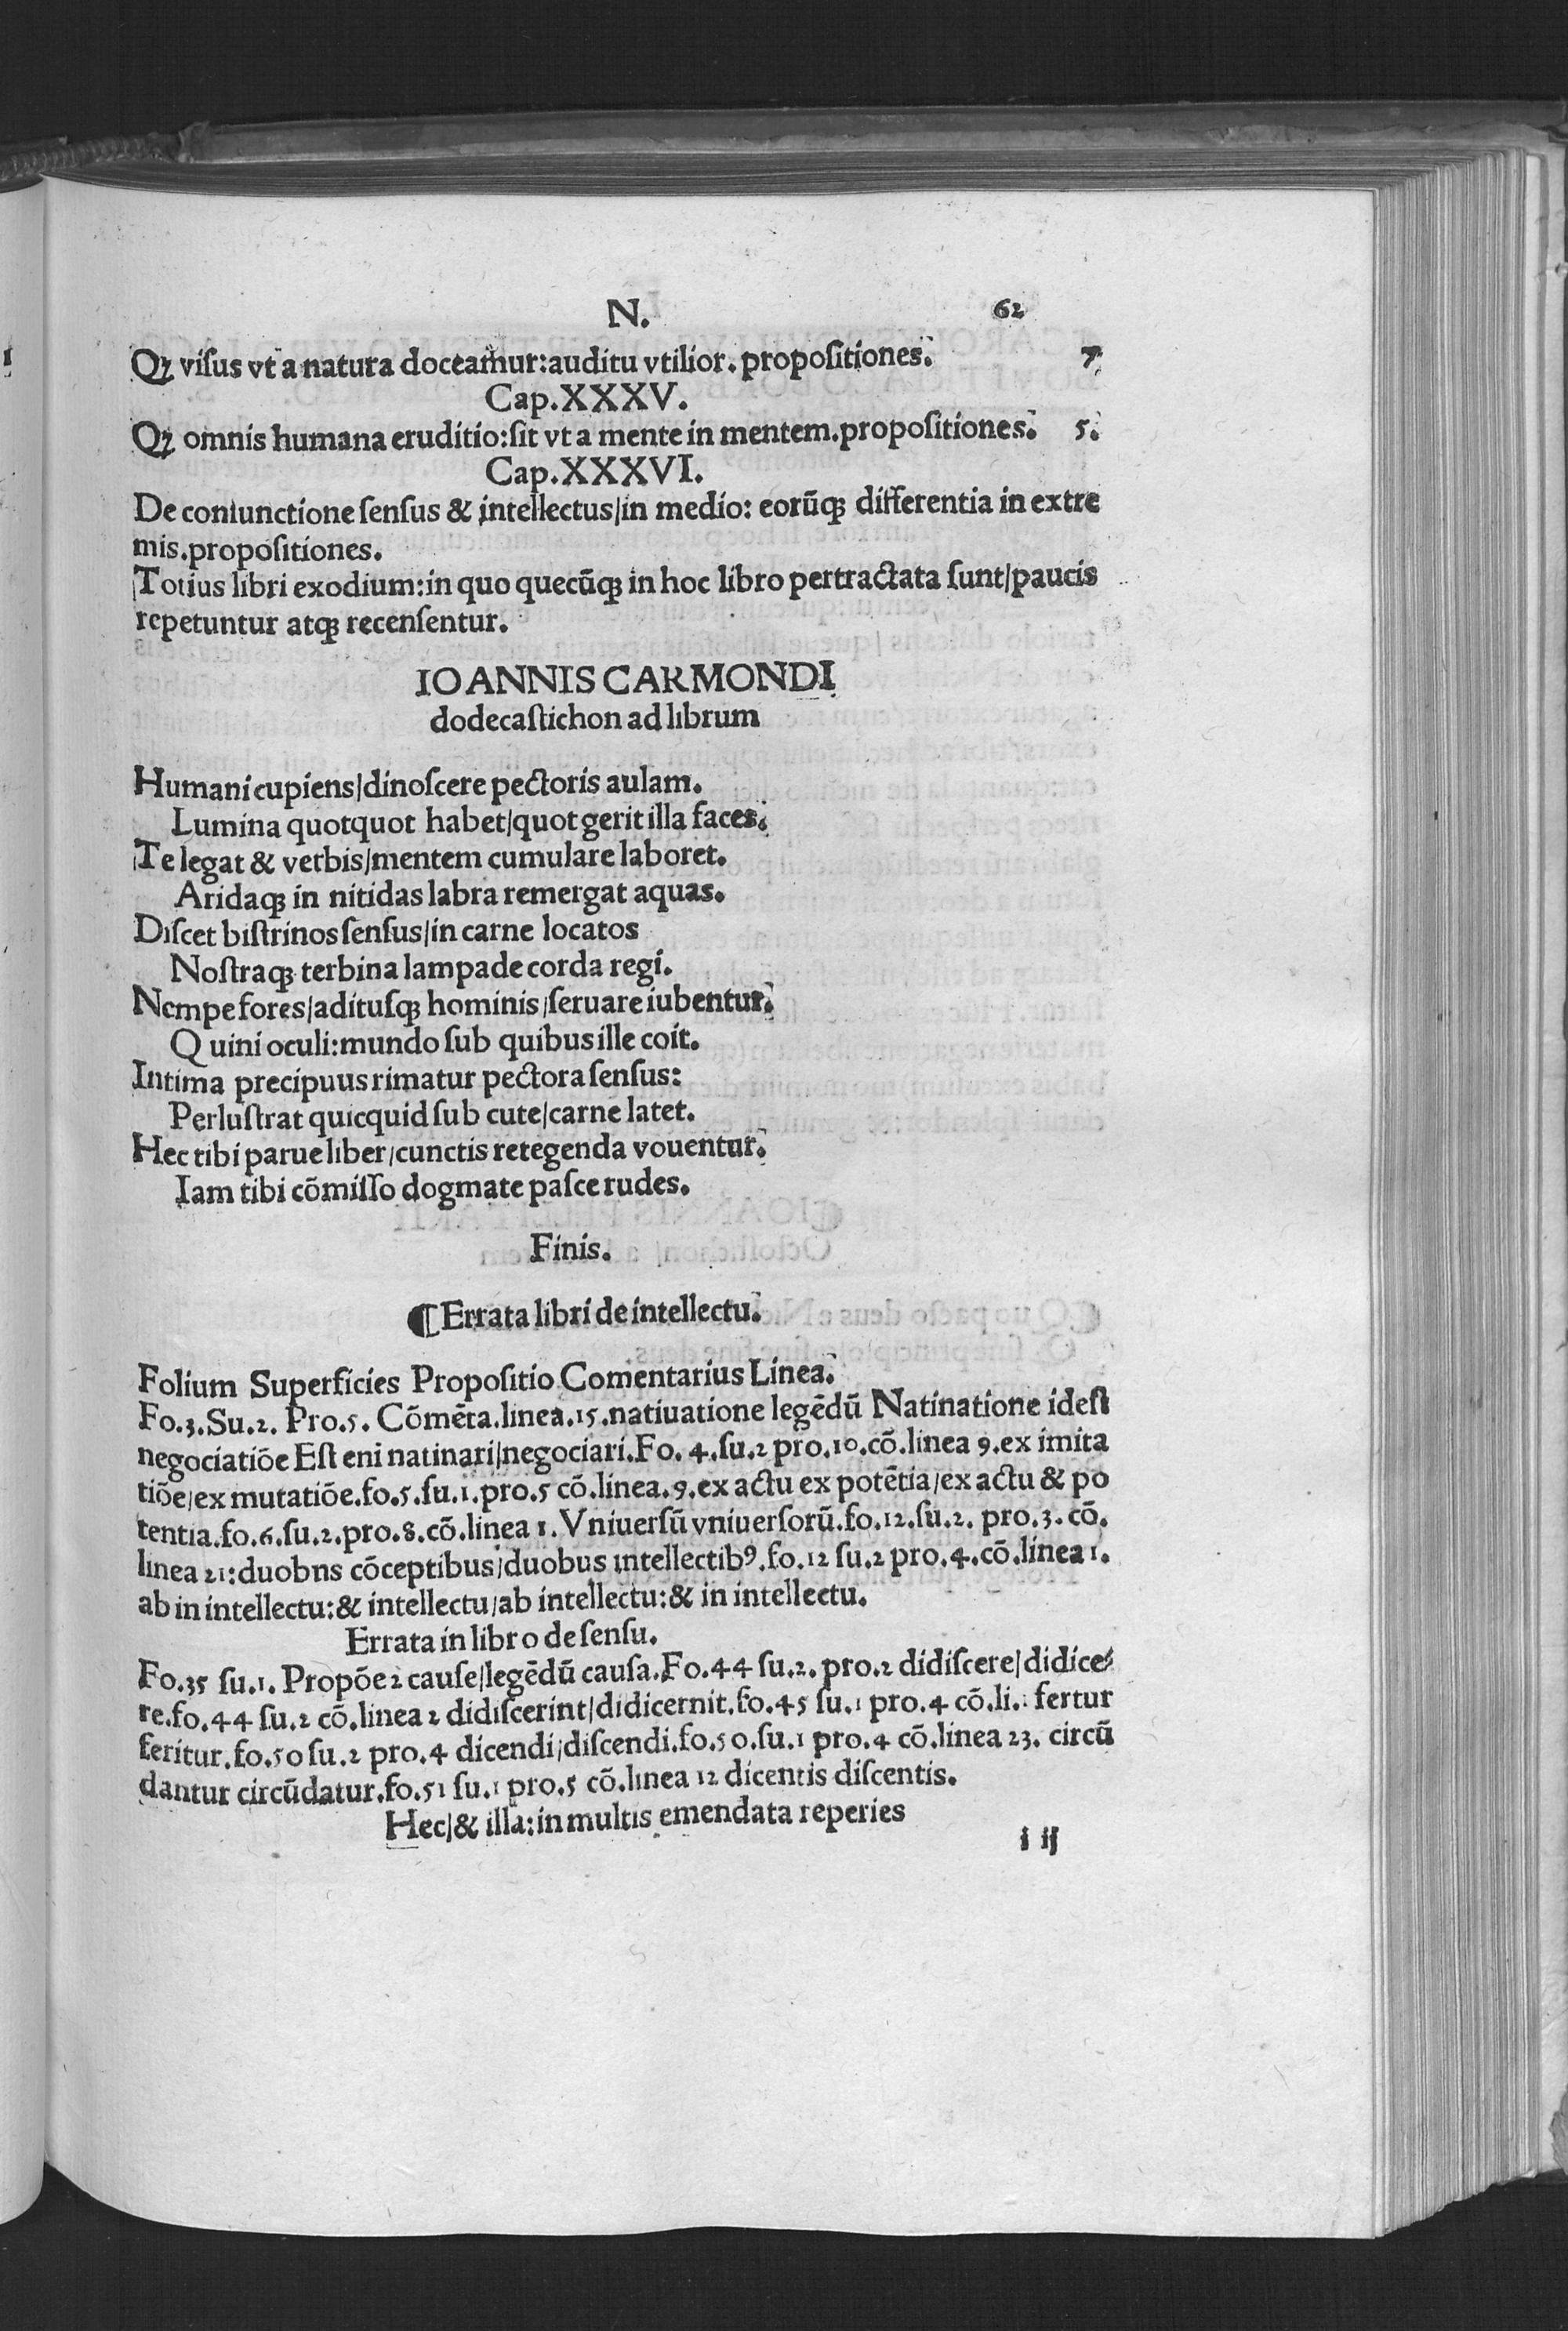 N. 62
Qꝫ viſus vt a natura doceamur:auditu vtilior.propoſitiones. 7
Cap.XXXV.
Qꝫ omnis humana eruditio:ſit vt a mente in mentem.propoſitiones. 5.
Cap.XXXVI.
De coniunctione ſenſus & intellectus/in medio: eorūqꝫ differentia in extre
mis.propoſitiones.
Totius libri exodium:in quo quecūqꝫ in hoc libro pertractata ſunt/paucis
repetuntur atqꝫ recenſentur.
IOANNIS CARMONDI
dodecaſtichon ad librum
Humani cupiens/dinoſcere pectoris aulam.
Lumina quotquot habet/quot gerit illa faces.
Te legat & verbis/mentem cumulare laboret.
Aridaqꝫ in nitidas labra remergat aquas.
Diſcet biſtrinos ſenſus/in carne locatos
Noſtraqꝫ terbina lampade corda regi.
Nempe fores/adituſqꝫ hominis/ſeruare iubentur.
Quini oculi:mundo ſub quibus ille coit.
Intima precipuus rimatur pectora ſenſus:
Perluſtrat quicquid ſub cute/carne latet.
Hec tibi parue liber/cunctis retegenda vouentur.
Iam tibi cōmiſſo dogmate paſce rudes.
Finis.
¶Errata libri de intellectu.
Folium Superficies Propoſitio Comentarius Linea.
Fo.3.Su.2. Pro.5. Cōmēta.linea.15.natiuatione legēdū Natinatione ideſt
negociatiōe Eſt eni natinari/negociari.Fo. 4.ſu.2 pro.10.cō.linea 9.ex imita
tiōe/ex mutatiōe.fo.5.ſu.1.pro.5 cō.linea.9.ex actu ex potētia/ex actu & po
tentia.fo.6.ſu.2.pro.8.cō.linea 1.Vniuerſū vniuerſorū.fo.12.ſu.2. pro.3.cō.
linea 21:duobns cōceptibus/duobus intellectibꝰ.fo.12 ſu.2 pro.4.cō.linea 1.
ab in intellectu:& intellectu/ab intellectu:& in intellectu.
Errata in libro de ſenſu.
Fo.35 ſu.1. Propōe 2 cauſe/legēdū cauſa.Fo.44 ſu.2. pro.2 didiſcere/didice⸗
re.fo.44 ſu.2 cō.linea 2 didiſcerint/didicernit.fo.45 ſu.1 pro.4 cō.li. fertur
feritur.fo.50 ſu.2 pro.4 dicendi/diſcendi.fo.50.ſu.1 pro.4 cō.linea 23. circū
dantur circūdatur.fo.51 ſu.1 pro.5 cō.linea 12 dicentis diſcentis.
Hec/& illa:in multis emendata reperies
i ij